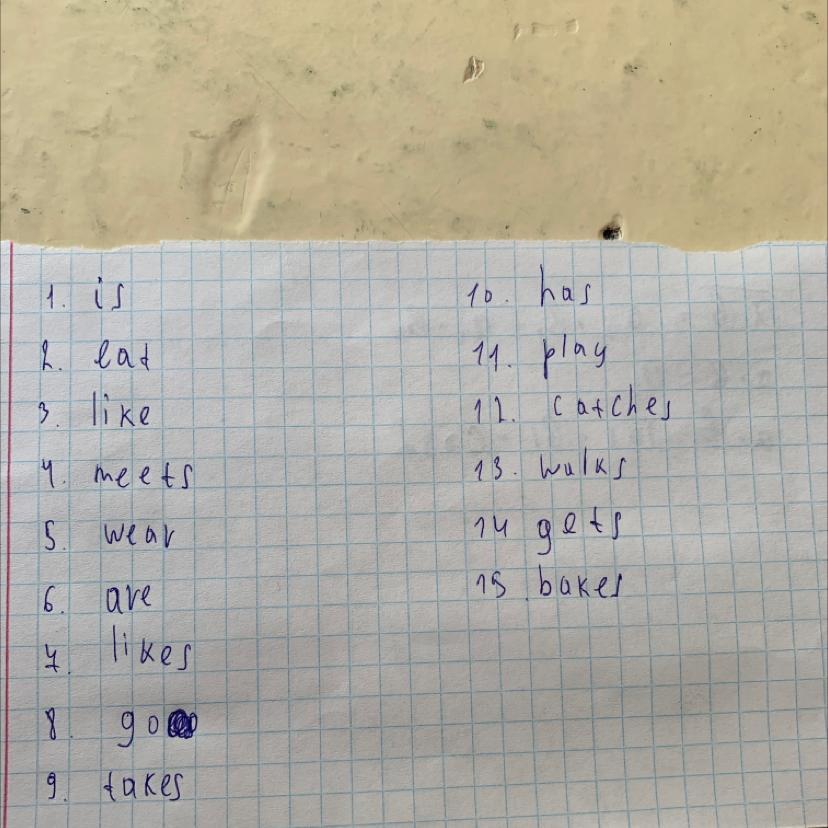 1. is
2. eat
3. like
4. meets
5. wear
6. are
7. likes
8. go
9. takes
10. has
11. play
12. catches
13. walks
14 gets
15 bakes